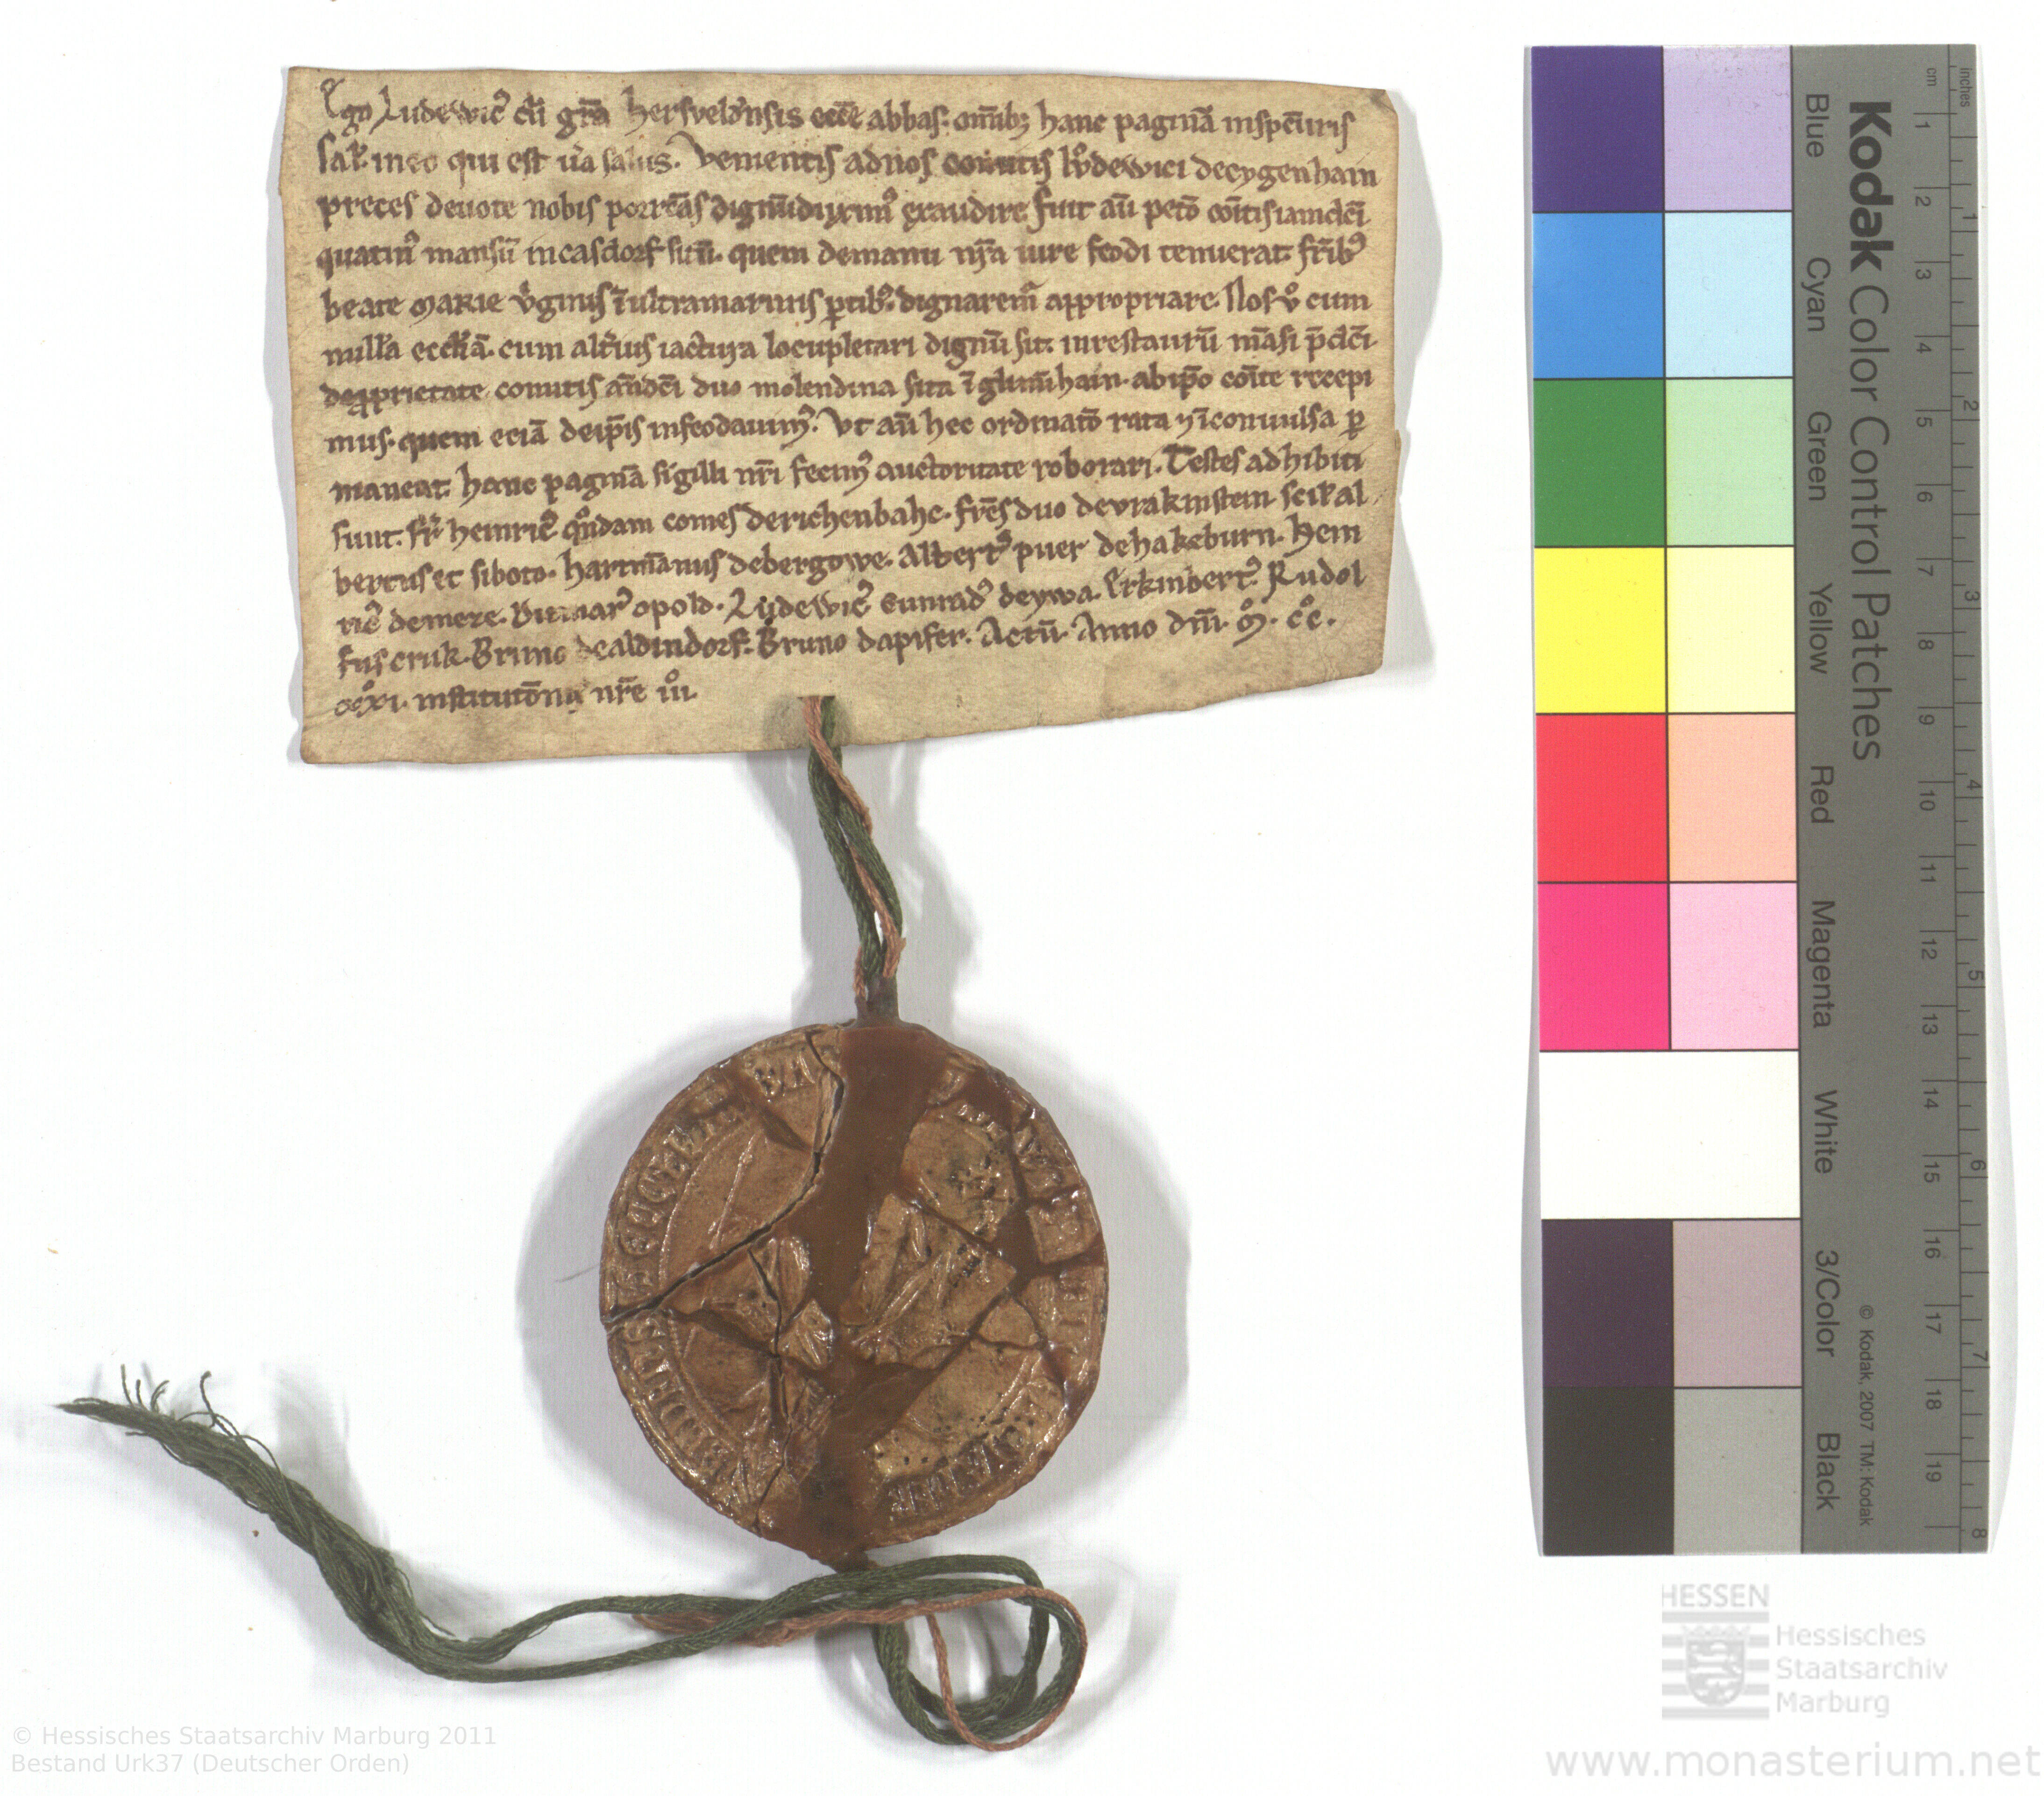 Ego Ludewic᾽ di gr̄a hersveldn̄sis ecc̄e abbas. om̄ib; hanc paginā inspc̄uris
sal̄. in eo qui est u̓a salus. Venientis ad nos comitis lůdewici de cygenhain
preces deuote nobis porrec̄as dignū duxim᾽ exaudire. fuit aū petic̄o com̄itis iamdc̄i
quatin᾽ mansū in casdorf sitū. quem de manu nr̄a iure feodi tenuerat. fr̄ib᾽
beate MARIE v̓ginis ī ultramarinis ꝑtib᾽. dignarem᾽ appropriare. Nos v̊ cum
nulla eccl̄ia. cum alt̓ius iactura locupletari dignū sit. in restaurū māsi p̄dc̄i
de ꝓprietate comitis an̄dc̄i duo molendina sita ī glimēhain. ab ip̄o com̄ite recepi
mus. quem eciā de ip̄is infeodauim᾽. Vt aū hec ordinatō rata ⁊ īconuulsa ꝑ
maneat. hanc paginā sigilli nr̄i fecim᾽ auctoritate roborari. Testes adhibiti
sunt. fr̄ heinric᾽ qͦndam comes de richenbahc. fr̄es duo de vrakinstein. scil̄. al
bertus et siboto. hartmānus de bergowe. Albert᾽ puer de hakeburn. Hein
ric᾽ de mere. Ditmar᾽ opold. Lůdewic᾽ Cunrad᾽ de ywa. Erkinbert᾽. Rudol
fus cruk. Bruno de aldindorf. Bruno dapifer. Actū. Anno dn̄i. M̊. c̊c.
xxi. institutōnis nr̄e iii.
Kodak Color Control Patches
Blue Cyan Green Yellow Red Magenta White 3/Color Black
© Kodak, 2007 TM: Kodak
cm 1 2 3 4 5 6 7 8 9 10 11 12 13 14 15 16 17 18 19
inches 1 2 3 4 5 6 7 8
HESSEN
Hessisches
Staatsarchiv
Marburg
© Hessisches Staatsarchiv Marburg 2011
Bestand Urk37 (Deutscher Orden)
www.monasterium.net